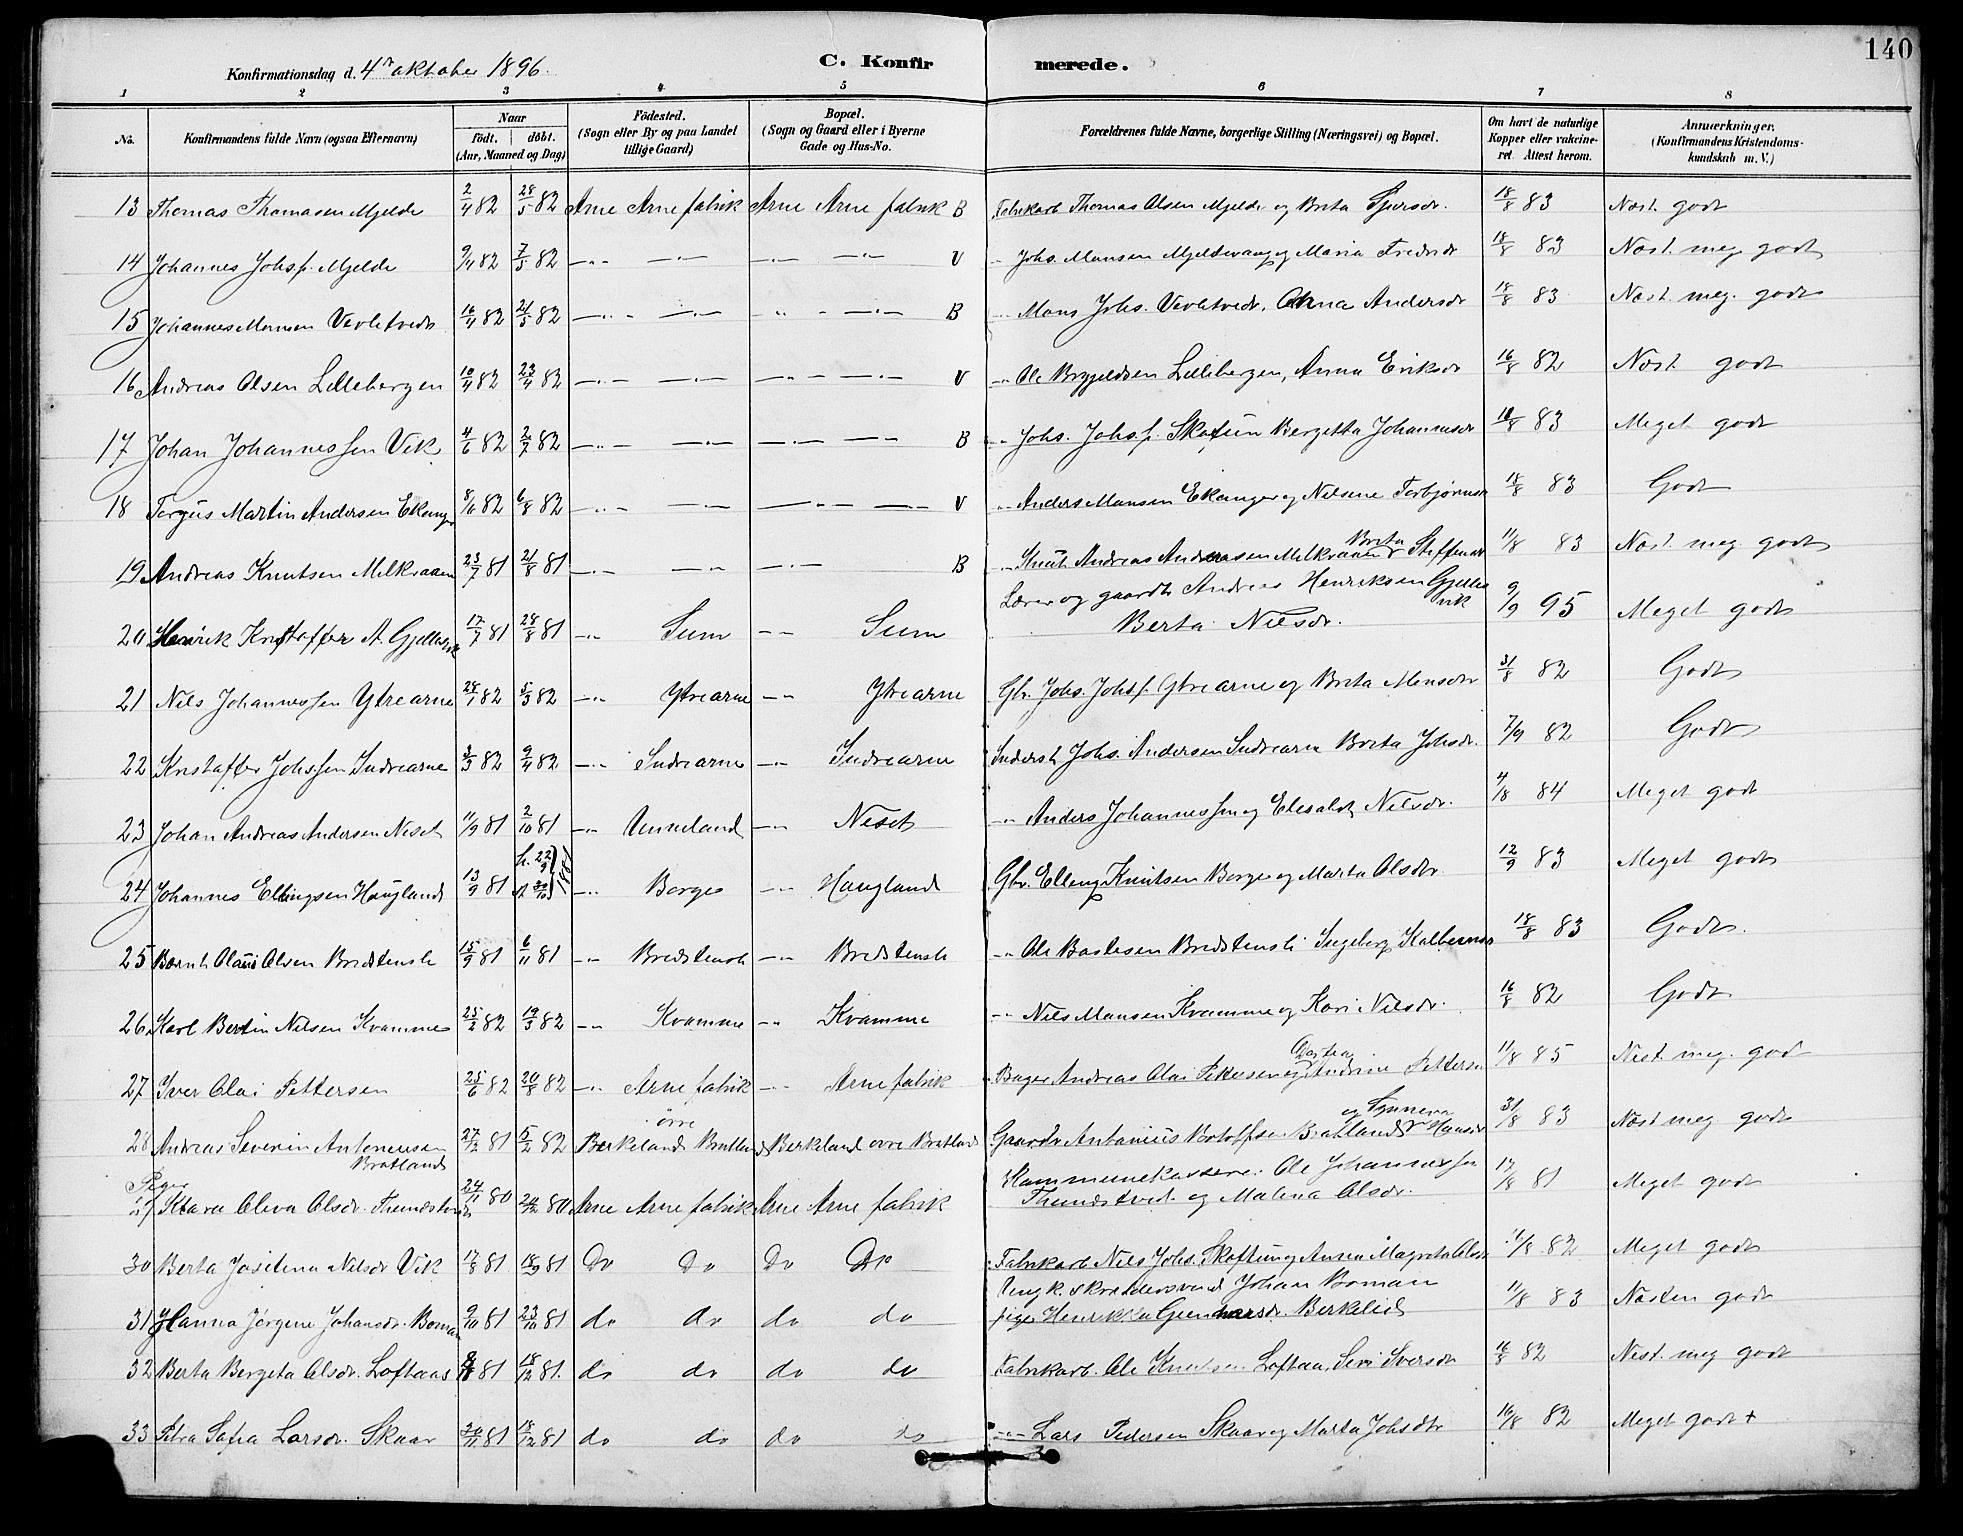 140
Konfirmationsdag d. 4de oktober 1896.
C. Konfirmerede.
1 2 3 4 5 6 7 8
No. Konfirmandens fulde Navn (ogsaa Efternavn) Naar födt. döbt. (Aar, Maaned og Dag) Födested. (Sogn eller By og paa Landet tillige Gaard) Bopæl. (Sogn og Gaard eller i Byerne Gade og Hus-No. Forældrenes fulde Navne, borgerlige Stilling (Næringsvei) og Bopæl. Om havt de naturlige Kopper eller vakcineret. Attest herom. Anmærkninger. (Konfirmandens Kristendomskundskab m. V.)
13 Thomas Thomasen Mjelde 2/4 82 28/5 82 Arne Arne fabrik Arne Arne fabrik B Fabrikarb Thomas Olsen Mjelde og Brita Iversdr. 18/8 83 Næst. godt
14 Johannes Johs.f. Mjelde 9/4 82 7/5 82 —"— —"— —"— —"— V " Johs. Monsen Mjeldevang og Maria Fredrdr 18/8 83 Næst. meg godt
15 Johannes Monsen Vevletvedt 16/4 82 21/5 82 —"— —"— —"— —"— B —"— Mons Johs. Vevletvedt, Anna Andersdr 18/8 83 Næst. meg. godt
16 Andreas Olsen Lillebergen 10/4 82 23/4 82 —"— —"— —"— —"— V —"— Ole Brynjeldsen Lillebergen, Anna Eriksdr 16/8 82 Næst godt
17 Johan Johannessen Vik 4/6 82 2/7 82 —"— —"— —"— —"— B —"— Johs. Johs.f. Skaftun Bergetta Johannesdr 18/8 83 Meget godt
18 Torgus Martin Andersen Ekanger 8/6 82 6/8 82 —"— —"— —"— —"— V —"— Anders Monsen Ekanger og Nilsine Torbjørnsd 18/8 83 Godt
19 Andreas Knutsen Melkraaen 23/7 81 21/8 81 —"— —"— —"— B —"— Knut Andreas Andreasen Melkraaen Brita Steffensdr 11/8 83 Næst. meg godt
20 Henrik Kristoffer A. Gjellesvik 17/7 81 28/8 81 —"— Seim —"— Seim Lærer og gaardb Andreas Henriksen Gjellesvik
Berta Nilsdr. 9/9 95 Meget godt
21 Nils Johannessen Ytrearne 28/1 82 5/3 82 —"— Ytrearne —"— Ytrearne Gbr. Johs. Johs.f. Ytrearne og Brita Monsdtr 31/8 82 Godt
22 Kristoffer Johssen Indrearne 3/3 82 9/4 82 —"— Indrearne —"— Indrearne Inderst Johs. Andersen Indrearne Brita Johsdr. 7/9 82 Godt
23 Johan Andreas Andersen Neset 11/9 81 2/10 81 —"— Unneland —"— Neset —"— Anders Johannessen og Elesabet Nilsdr. 4/8 84 Meget godt
24 Johannes Ellingsen Haugland 13/9 81 h. 22/9 k 30/10 1881 —"— Borge —"— Haugland Gbr. Elling Knutsen Borge og Marta Olsdtr. 12/9 83 Meget godt
25 Bernt Olaus Olsen Bredstensli 15/9 81 6/11 81 —"— Bredstensli —"— Bredstensli —"— Ole Bastesen Bredstensli Ingeborg Kolbensdr 18/8 83 Godt.
26 Karl Bertin Nilsen Kvamme 25/2 82 19/3 82 —"— Kvamme —"— Kvamme —"— Nils Monsen Kvamme og Kari Nilsdr. 16/8 82 Godt
27 Iver Olai Pettersen 25/6 82 20/8 82 —"— Arne fabrik —"— Arne fabrik Bager Andreas Olai Petersen og Andrine Pettersen 11/8 85 Næst. meg. godt
28 Andreas Severin Antoniussen Bratland 27/12 81 5/2 82 Berkeland övre Bratland Berkeland övre Bratland Gaardbr Antonius Botolfsen Bratland og Synneva Hansdr 31/8 83 Næst meg godt
Piger
29 Klara Oliva Olsdr. Thunestvedt 24/11 80 24/12 80 Arne Arne fabrik Arne Arne fabrik Kommunekasserer Ole Johannessen
Thunestvedt og Malena Olsdr. 17/8 81 Meget godt
30 Berta Josefina Nilsdr Vik 17/8 81 18/9 81 Do Do Do Do Fabrikarb Nils Johs. Skaftun og Anna Magreta Olsdr 11/8 82 Meget godt
31 Hanna Jørgine Johansdr. Boman 9/10 81 23/10 81 do do do do Ungk. skræddersvend Johan Boman
pige Henrikka Gunnarsdr. Berklid 11/8 83 Næsten godt
32 Berta Bergeta Olsdr. Loftaas 81 18/12 81. do do do do Fabrikarb. Ole Knutsen Loftaas, Siri Iversdr 16/8 82 Næst. meg godt
33 Petra Sofia Larsdr. Skaar 20/11 81 18/12 81 do do do do —"— Lars Pedersen Skaar og Marta Johsdtr 16/8 82 Meget godt +